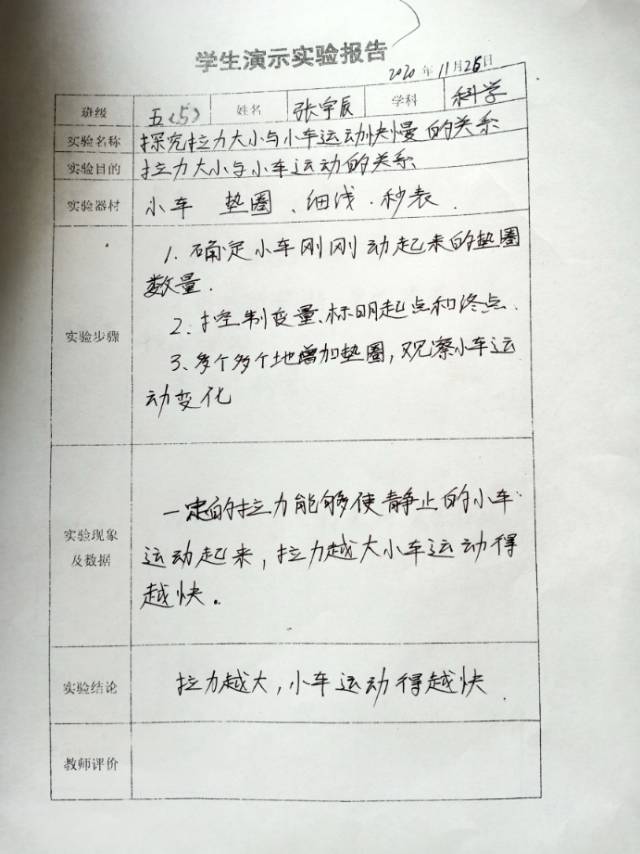 学生演示实验报告
2020年11月26日
班级 五(5) 姓名 张宇辰 学科 科学
实验名称 探究拉力大小与小车运动快慢的关系
实验目的 拉力大小与小车运动的关系
实验器材 小车 垫圈、细线·秒表.
实验步骤
1. 确定小车刚刚动起来的垫圈
数量.
2、控制变量、标明起点和终点.
3、多个多个地增加垫圈,观察小车运
动变化
实验现象
及数据
一定的拉力能够使静止的小车
运动起来,拉力越大小车运动得
越快。
实验结论 拉力越大,小车运动得越快.
教师评价